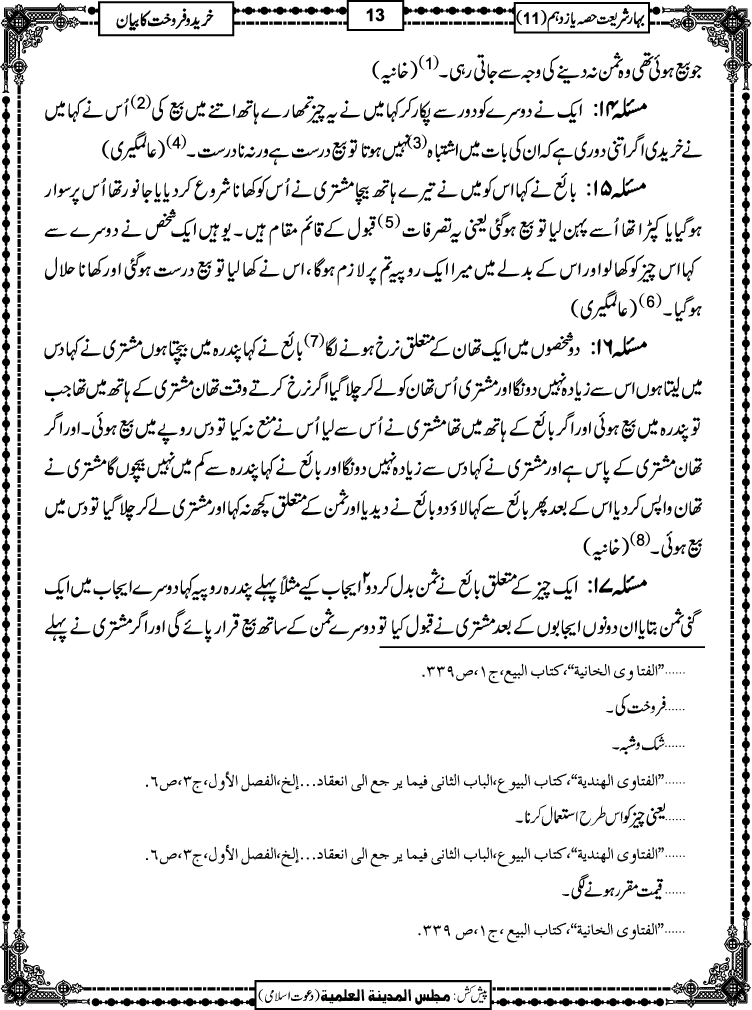 بہار شریعت حصہ یازدہم (11)
13
خرید و فروخت کا بیان
جو بیع ہوئی تھی وہ ثمن نہ دینے کی وجہ سے جاتی رہی۔(1) (خانیہ)
مسئلہ ۱۴: ایک نے دوسرے کو دور سے پکار کر کہا میں نے یہ چیز تمھارے ہاتھ اتنے میں بیع کی(2) اُس نے کہا میں
نے خریدی اگر اتنی دوری ہے کہ ان کی بات میں اشتباہ(3) نہیں ہوتا تو بیع درست ہے ورنہ نادرست۔(4) (عالمگیری)
مسئلہ ۱۵: بائع نے کہا اس کو میں نے تیرے ہاتھ بیچا مشتری نے اُس کو کھانا شروع کردیا یا جانور تھا اُس پر سوار
ہوگیا یا کپڑا تھا اُسے پہن لیا تو بیع ہوگئی یعنی یہ تصرفات(5) قبول کے قائم مقام ہیں۔ یوہیں ایک شخص نے دوسرے سے
کہا اس چیز کو کھالو اور اس کے بدلے میں میرا ایک روپیہ تم پر لازم ہوگا، اس نے کھالیا تو بیع درست ہوگئی اور کھانا حلال
ہوگیا۔(6) (عالمگیری)
مسئلہ ۱۶: دو شخصوں میں ایک تھان کے متعلق نرخ ہونے لگا(7) بائع نے کہا پندرہ میں بیچتا ہوں مشتری نے کہا دس
میں لیتا ہوں اس سے زیادہ نہیں دونگا اور مشتری اُس تھان کو لے کر چلا گیا اگر نرخ کرتے وقت تھان مشتری کے ہاتھ میں تھا جب
تو پندرہ میں بیع ہوئی اور اگر بائع کے ہاتھ میں تھا مشتری نے اُس سے لیا اُس نے منع نہ کیا تو دس روپے میں بیع ہوئی۔ اور اگر
تھان مشتری کے پاس ہے اور مشتری نے کہا دس سے زیادہ نہیں دونگا اور بائع نے کہا پندرہ سے کم میں نہیں بیچوں گا مشتری نے
تھان واپس کردیا اس کے بعد پھر بائع سے کہا لاؤ دو بائع نے دیدیا اور ثمن کے متعلق کچھ نہ کہا اور مشتری لے کر چلا گیا تو دس میں
بیع ہوئی۔(8) (خانیہ)
مسئلہ ۱۷: ایک چیز کے متعلق بائع نے ثمن بدل کر دو۲ ایجاب کیے مثلاً پہلے پندرہ روپیہ کہا دوسرے ایجاب میں ایک
گنی ثمن بتایا ان دونوں ایجابوں کے بعد مشتری نے قبول کیا تو دوسرے ثمن کے ساتھ بیع قرار پائے گی اور اگر مشتری نے پہلے
......"الفتاوی الخانیة"،کتاب البیع،ج۱،ص۳۳۹.
......فروخت کی۔
......شک و شبہ۔
......"الفتاوی الهندیة"،کتاب البیوع،الباب الثانی فیما یرجع الی انعقاد...إلخ،الفصل الأول،ج۳،ص۶.
......یعنی چیز کو اس طرح استعمال کرنا۔
......"الفتاوی الهندیة"،کتاب البیوع،الباب الثانی فیما یرجع الی انعقاد...إلخ،الفصل الأول،ج۳،ص۶.
......قیمت مقرر ہونے لگی۔
......"الفتاوی الخانیة"،کتاب البیع،ج۱،ص ۳۳۹.
پیش کش: مجلس المدینة العلمیة (دعوت اسلامی)